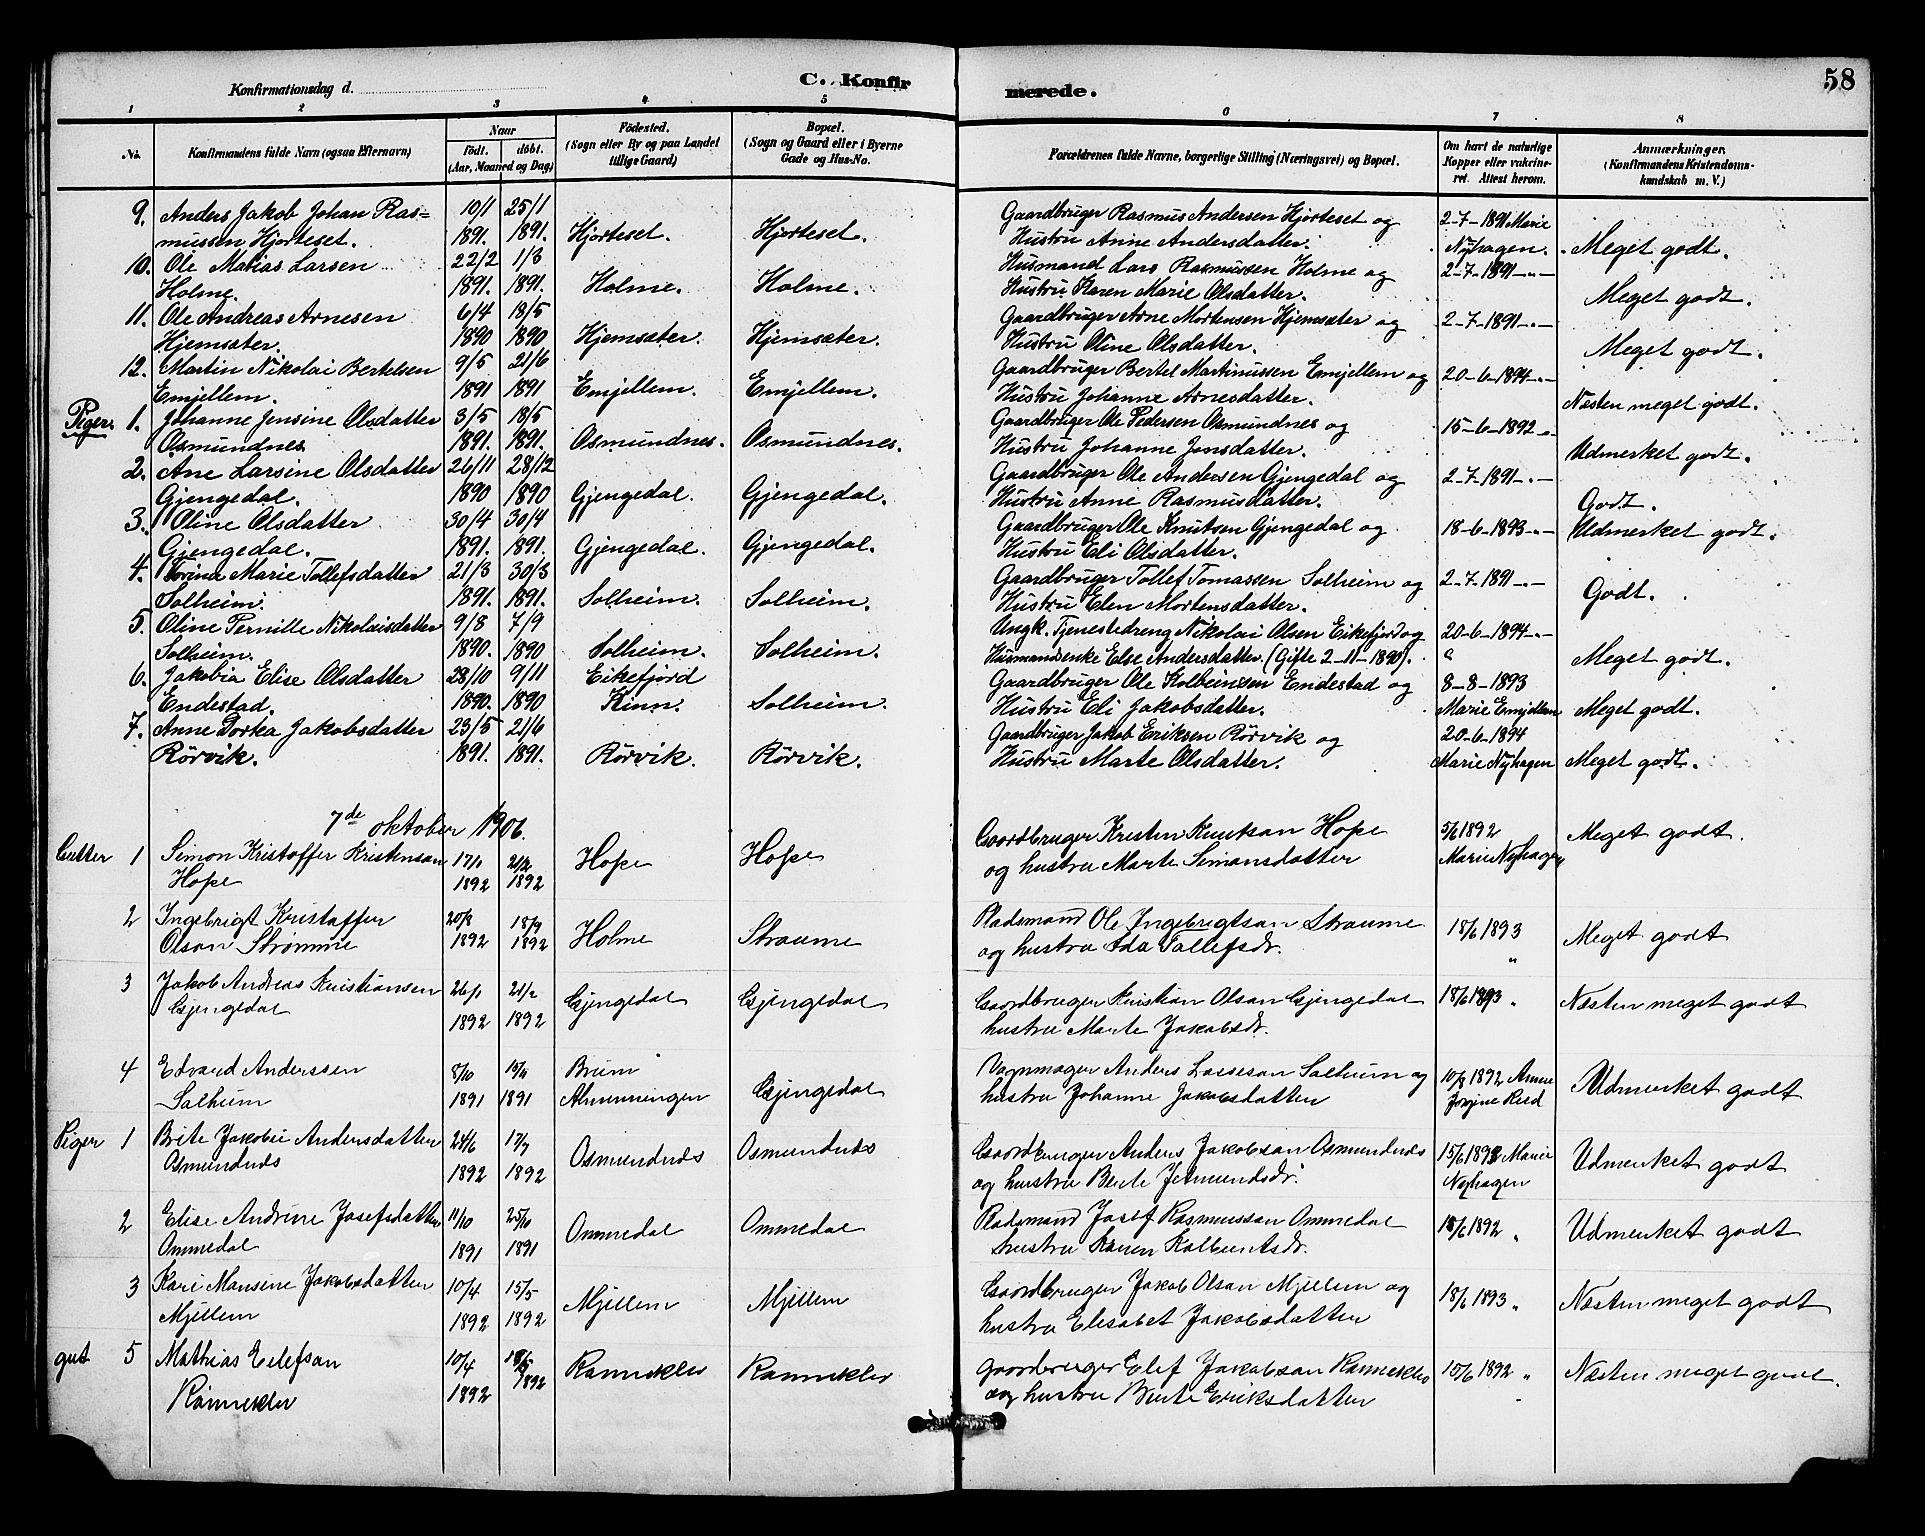 58
C. Konfir merede.
Konfirmationsdag d.
1 2 3 4 5 6 7 8
No.
Konfirmandens fulde Navn (ogsaa Efternavn)
Naar
födt. döbt.
(Aar, Maaned og Dag)
Födested.
(Sogn eller By og paa Landet
tillige Gaard)
Bopæl.
(Sogn og Gaard eller i Byerne
Gade og Hus-No.
Forældrenes fulde Navne, borgerlige Stilling (Næringsvei) og Bopæl.
Om havt de naturlige
Kopper eller vakcine-
ret. Attest herom.
Anmærkninger.
(Konfirmandens Kristendoms-
kundskab m. V.)
9. Anders Jakob Johan Ras= 10/1 25/1 Gaardbruger Rasmus Andersen Hjorteset og 2-7-1891 Marie
mussen Hjorteset. 1891. 1891. Hjorteset. Hjorteset. Hustru Anne Andersdatter. Nyhagen. Meget godt.
10. Ole Matias Larsen 22/2 1/3 Husmand Lars Rasmussen Holme og 2-7-1891-"-
Holme. 1891. 1891. Holme. Holme. Hustru Karen Marie Olsdatter. Meget godt.
11. Ole Andreas Arnesen 6/4 18/5 Gaardbruger Arne Mortensen Hjemsæter og 2-7-1891-"-
Hjemsæter. 1890 1890 Hjemsæter. Hjemsæter. Hustru Oline Olsdatter. Meget godt.
12. Martin Nikolai Bertelsen 9/5 21/6 Gaardbruger Bertel Martinussen Emjellem og 20-6-1894-"-
Emjellem. 1891 1891 Emjellem. Emjellem. Hustru Johanne Arnesdatter. Næsten meget godt.
Piger. 1. Johanne Jensine Olsdatter 3/5 18/5 Gaardbruger Ole Pedersen Osmundnes og 15-6-1892-"-
Osmundnes 1891. 1891. Osmundnes. Osmundnes. Hustru Johanne Jensdatter. Udmerket godt.
2. Ane Larsine Olsdatter 26/11 28/12 Gaardbruger Ole Andersen Gjengedal og 2-7-1891-"-
Gjengedal. 1890 1890 Gjengedal. Gjengedal. Hustru Anne Rasmusdatter. Godt.
3. Oline Olsdatter 30/4 30/4 Gaardbruger Ole Knutsen Gjengedal og 18-6-1893-"- Udmerket godt.
Gjengedal. 1891. 1891. Gjengedal. Gjengedal. Hustru Eli Olsdatter.
4. Torina Marie Tollefsdatter 21/3 30/3 Gaardbruger Tollef Tomassen Solheim og 2-7-1891-"-
Solheim. 1891. 1891. Solheim. Solheim. Hustru Elen Mortensdatter. Godt.
5. Oline Pernille Nikolaisdatter 9/8 7/9 Ungk. Tjenestedreng Nikolai Olsen Eikefjord og 20-6-1894-"-
Solheim. 1890. 1890 Solheim. Solheim. Husmandsenke Else Andersdatter. (Gifte 2-11-1890). " Meget godt.
6. Jakobia Elise Olsdatter 28/10 9/11 Eikefjord Gaardbruger Ole Kolbeinsen Endestad og 8-8-1893
Endestad. 1890. 1890 Kinn. Solheim. Hustru Eli Jakobsdatter. Marie Emjellem Meget godt.
7. Anne Dorka Jakobsdatter 23/5 21/6 Gaardbruger Jakob Eriksen Rörvik og 20-6-1894
Rörvik. 1891. 1891. Rörvik. Rörvik. Hustru Marte Olsdatter. Marie Nyhagen Meget godt.
7de oktober 1906.
Gutter 1 Simon Kristoffer Kristensen 17/1 21/2 Hope Hope Gaardbruger Kristen Knutsan Hope 5/6 1892 Meget godt.
Hope 1892 1892 og hustru Marte Simonsdatter Marie Nyhagen
2 Ingebrigt Kristoffer 20/8 18/9 Holme Straume Pladsmand Ole Ingebrigtsan Straume 18/6 1893 Meget godt
Olsan Strømme 1892 1892 og hustru Ida Tallefsdr. "
3 Jakob Andreas Kristiansen 26/1 21/2 Gjengedal Gjengedal Gaardbruger Kristian Olsan Gjengedal 18/6 1893 " Næsten meget godt
Gjengedal 1892 1892 hustru Marte Jakobsdr.
4 Edvard Anderssen 8/10 15/11 Breim Vognmager Anders Lassesan Solheim og 10/8 1892 Anne Udmerket godt
Solheim 1891 1891 Almenningen Gjengedal hustru Johanne Jakobsdatter Reed
Piger 1 Brite Jakobie Andersdatter 24/6 17/7 Osmundnes Osmundnes Gaardbruger Anders Jakobsan Osmundnes 15/6 1893 Marie Udmerket godt
Osmundnes 1892 1892 og hustru Berte Jetmundsdr. Nyhagen
2 Elise Andrine Josefsdatter 11/10 25/10 Ommedal Ommedal Pladsmand Josef Rasmussan Ommedal 15/6 1892 " Udmerket godt
Ommedal 1891 1891 hustru Karen Kolbeinsdr.
3 Kari Mansine Jakobsdatter 10/4 15/5 Mjellem Mjellem Gaardbruger Jakob Olsan Mjellem og 18/6 1893 " Næsten meget godt
Mjellem 1892 1892 hustru Elisabet Jakobsdatter
gut 5 Mathias Eilefsan 10/4 Ramneklev Ramneklev gaardbruger Elef Jakobsan Ramneklev 15/6 1892 " Næsten meget godt.
Ramneklev 1892 1892 og hustru Berte Eriksdatter